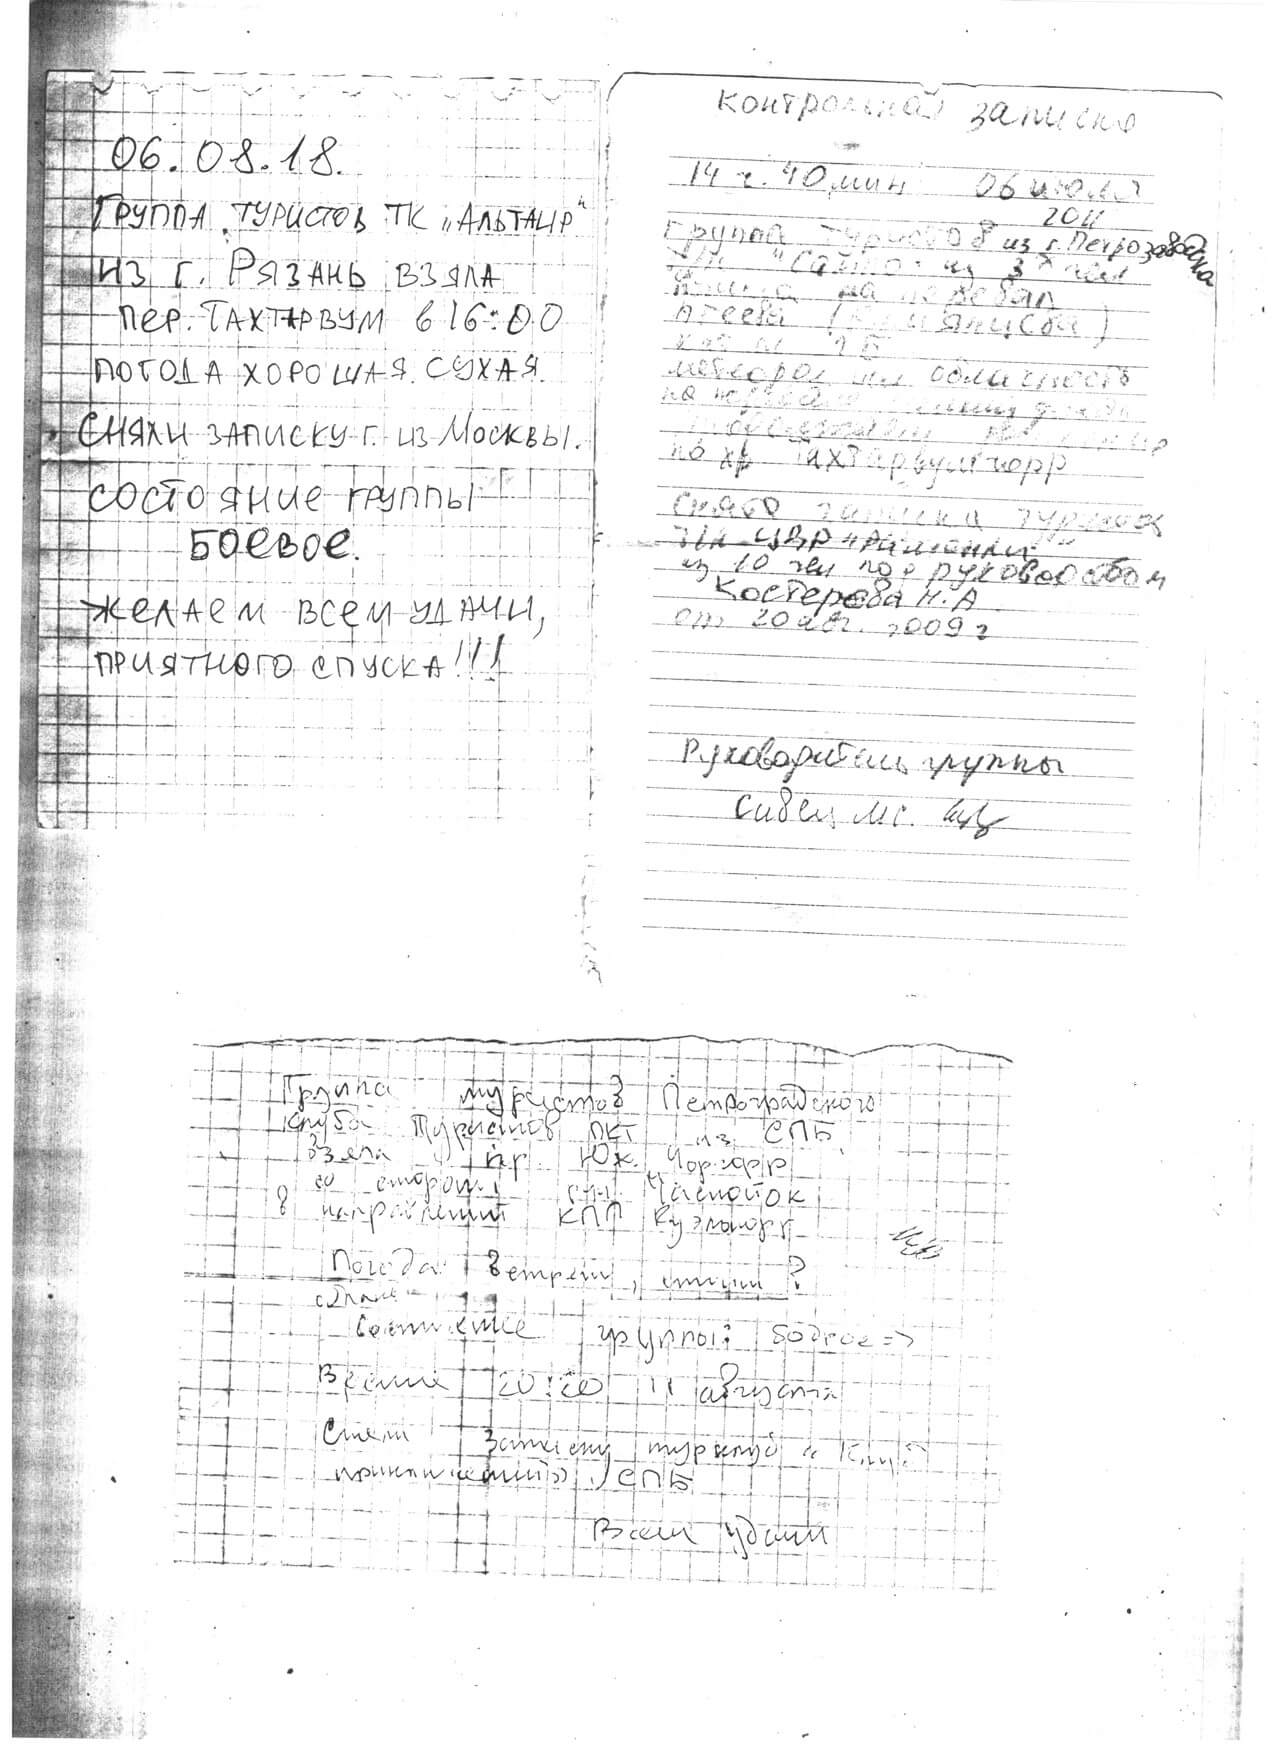 06.08.18.
ГРУППА ТУРИСТОВ ТК „АЛЬТАИР"
ИЗ Г. РЯЗАНЬ ВЗЯЛА
ПЕР. ТАХТАРВУМ В 16:00
ПОГОДА ХОРОШАЯ. СУХАЯ.
СНЯЛИ ЗАПИСКУ Г. ИЗ МОСКВЫ.
СОСТОЯНИЕ ГРУППЫ
БОЕВОЕ.
ЖЕЛАЕМ ВСЕМ УДАЧИ,
ПРИЯТНОГО СПУСКА!!!
Контрольная записка
14 ч. 40 мин 06 июля
2011
Группа туристов из г. Петрозаводска
из 3х чел
на перевал
облачность
по хр Тахтарвумчорр
снята записка туристов
из 10 чел под руководством
Костерева Н.А
от 20 авг. 2009 г
Руководитель группы
Сивец М С.
Группа туристов Петроградского
клуба туристов ПКТ из СПБ
взяла пр. Юж. Чоргорр
со стороны
в направлении КПП Куэльпорр
Погода: ветрено,
Состояние группы: бодрое =>
Время 20:20 11 августа
Сняли записку турклуб « Клуб
СПБ
Всем удачи